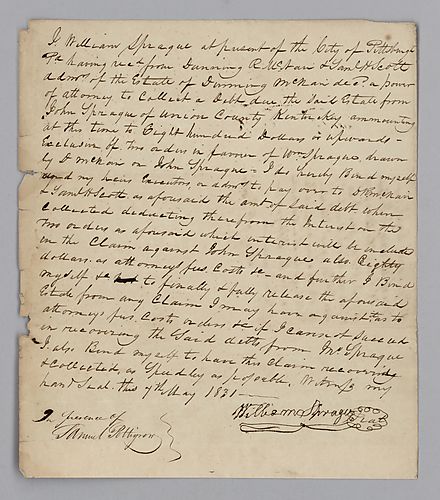 I William Sprague at present of the City of Pittsburgh
Pa having recd from Dunning R McNair & Saml H Scott
admrs of the Estate of Dunning McNair decd a power
of attorney to Collect a Debt due the said Estate from
John Sprague of Union County Kentuckey ammounting
at this time to Eight hundred Dollars or upwards –
Exclusive of two orders in favour of Wm Sprague drawn
by D McNair on John Sprague = I do hereby Bind myself
my heirs Executors, or admrs to pay over to D R McNair
& Saml H Scott as aforesaid the amt of said debt when
Collected deducting therefrom the Interest on the
two orders as aforesaid which interest will be included
in the Claim against John Sprague also Eighty
dollars as attorneys fees Costs &c – and further I Bind
myself to finally & fully release the aforesaid
Estate from any Claim I may have against it as to
attorneys fees, Costs orders &c if I cannot succeed
in recovering the said debt from Mr Sprague
I also Bind myself to have this Claim recovered
& collected, as Speedily as possable, Witness my
hand & Seal this 7th May 1831 –
William Sprague Seal
In presence of
Samuel Pettigrew